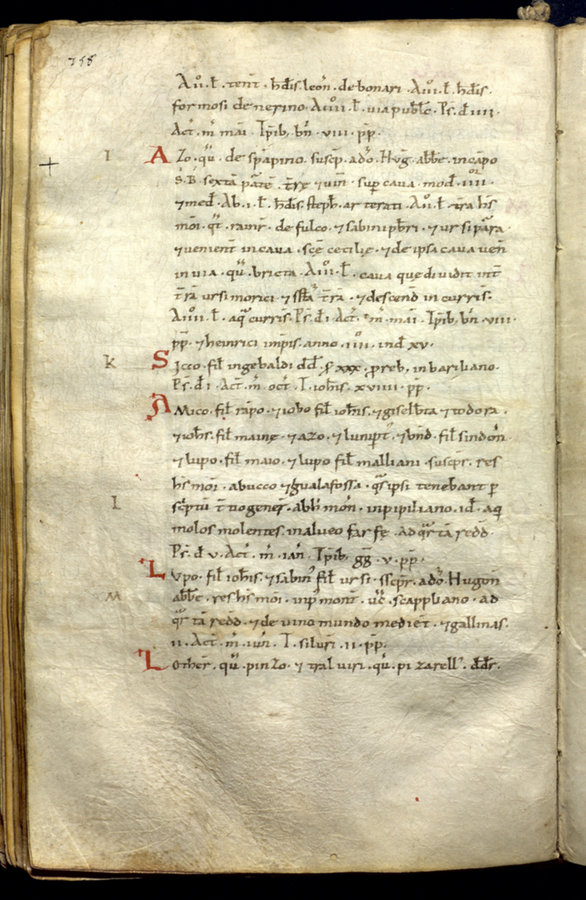 758
A·IIJ·ł·tenť·hdīs·león·debonari·A·IIIJ·ł·hdīs·
formosi denerino·A·IIIJ·ł·uiapublić·Ps·đ·IIII·
Act·m̄·mai·Tp̄ib·bn̄·VIII·pp̄·
I Azo·qū·de spapino·suscp̄·adō·Hug·abb̄e·incapo
S·B·sextā parte·t̄re ⁊uin̄·sup cava·mod·IIII·
⁊med·Ab·I·ł·hdīs·stepħ·arterati·A·II·ł·t̄ra hīs
mōi·qt̄·rainr̄·de fulco·⁊sabinipb̄ri·⁊ursi para
⁊uenient incava·sc̄e cecilię·⁊deipsa cava uen̄
inuia·qū·bricta·A·III·ł·cava quedividit int̄
t̄rā ursi morici ⁊ st̄a t̄rā·⁊descend̄ in curris·
A·IIII·ł·aq̄ curris·Ps·đ·I·Act·m̄·mai·Tp̄ib·bn̄·VIII·
pp̄·⁊heinrici imp̄is·anno·IIII·ind̄·XV·
k Sicco·fil̄ ingebaldi dd̄·ſ XXX·preb·inbariliano·
Ps·đ·I·Act·m̄·oct̄·T·iohis·XVIIII·pp̄·
Amico·fil̄ rapo·⁊iobo fil̄ iohis·⁊giselb̄ta ⁊todora·
⁊iohs·fil̄ maing·⁊azo·⁊lunipt̄·⁊bond̄·fil̄ sindon̄
⁊lupo·fil̄ maio·⁊lupo fil̄ malliani·suscpr̄·res
l hīs moi·abucco ⁊gualafossa·qs̄ ipsi tenebant p
sc̄ptū t̄tio geneŗ·abh̄ mon̄·inpipiliano·id·aq̄
molos molentes·inalueo farfę·ad qr̄tā redd̄·
Ps·đ·V·Act·m̄·ian̄·Tp̄ib·gg̃·V·pp̄·
Lupo·fil̄ iohis·⁊sabin̄ fil̄ ursi·sscpr̄·adō·Hugon̄
M abb̄e·res hīs moi·inp̄ mont̄·uc̄·scappliano·ad
qr̄tā redd̄·⁊de uino mundo mediet̄·⁊gallinas·
II·Act·m̄·iun̄·T·siluri·II·pp̄·
Lother̄·qū·pinzo·⁊traluiri·qū·pizarell̄·dd̄r·